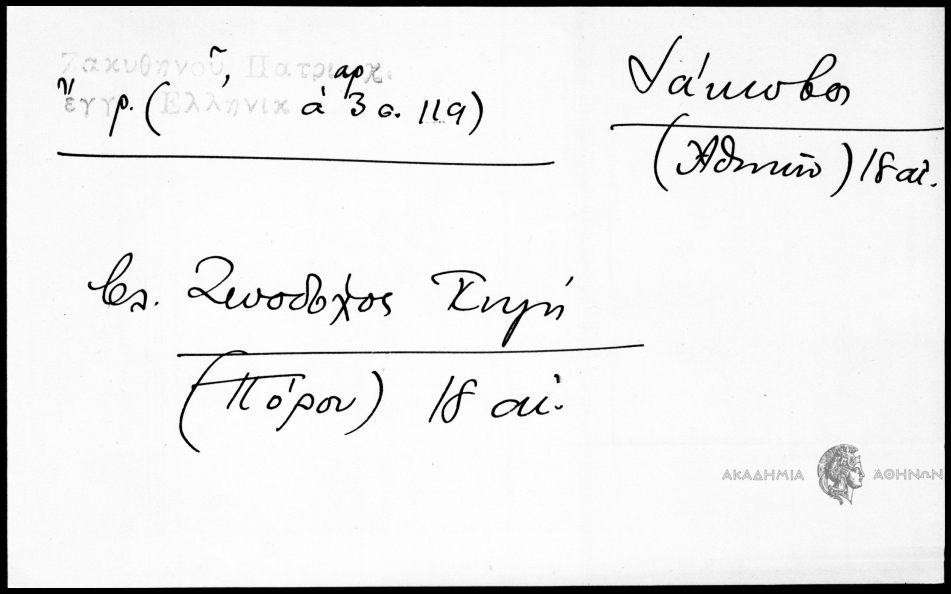 Ζακυθηνοῦ, Πατριαρχ.
ἔγγρ. (Ἑλληνικά 3 σ. 119)
Ἰάκωβος
(Ἀθηνῶν) 18 αἰ.
βλ. Ζωοδόχος Πηγή
(Πόρου) 18 αἰ.
ΑΚΑΔΗΜΙΑ ΑΘΗΝΩΝ